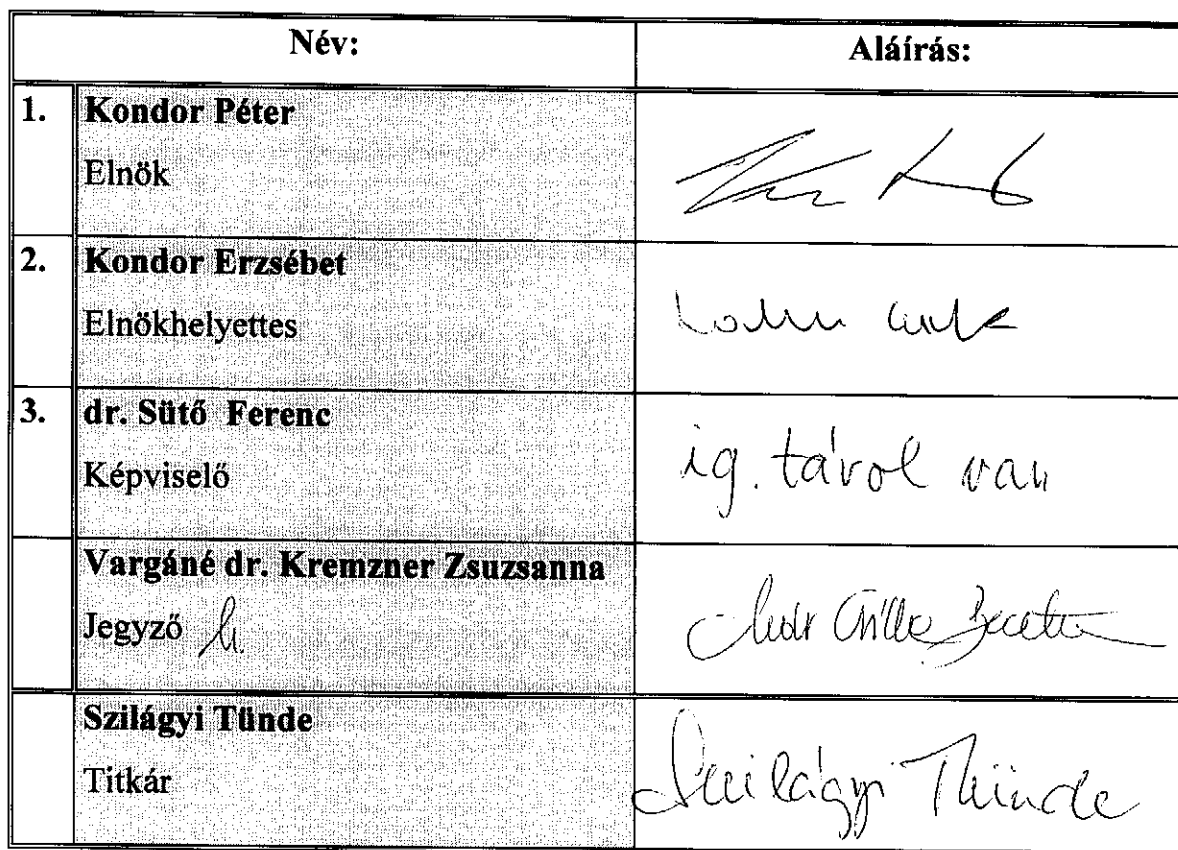 Név: Aláírás:
1. Kondor Péter
Elnök
2. Kondor Erzsébet
Elnökhelyettes
3. dr. Sütő Ferenc
Képviselő
ig. távol van
Vargáné dr. Kremzner Zsuzsanna
Jegyző h.
Szilágyi Tünde
Titkár
Szilágyi Tünde